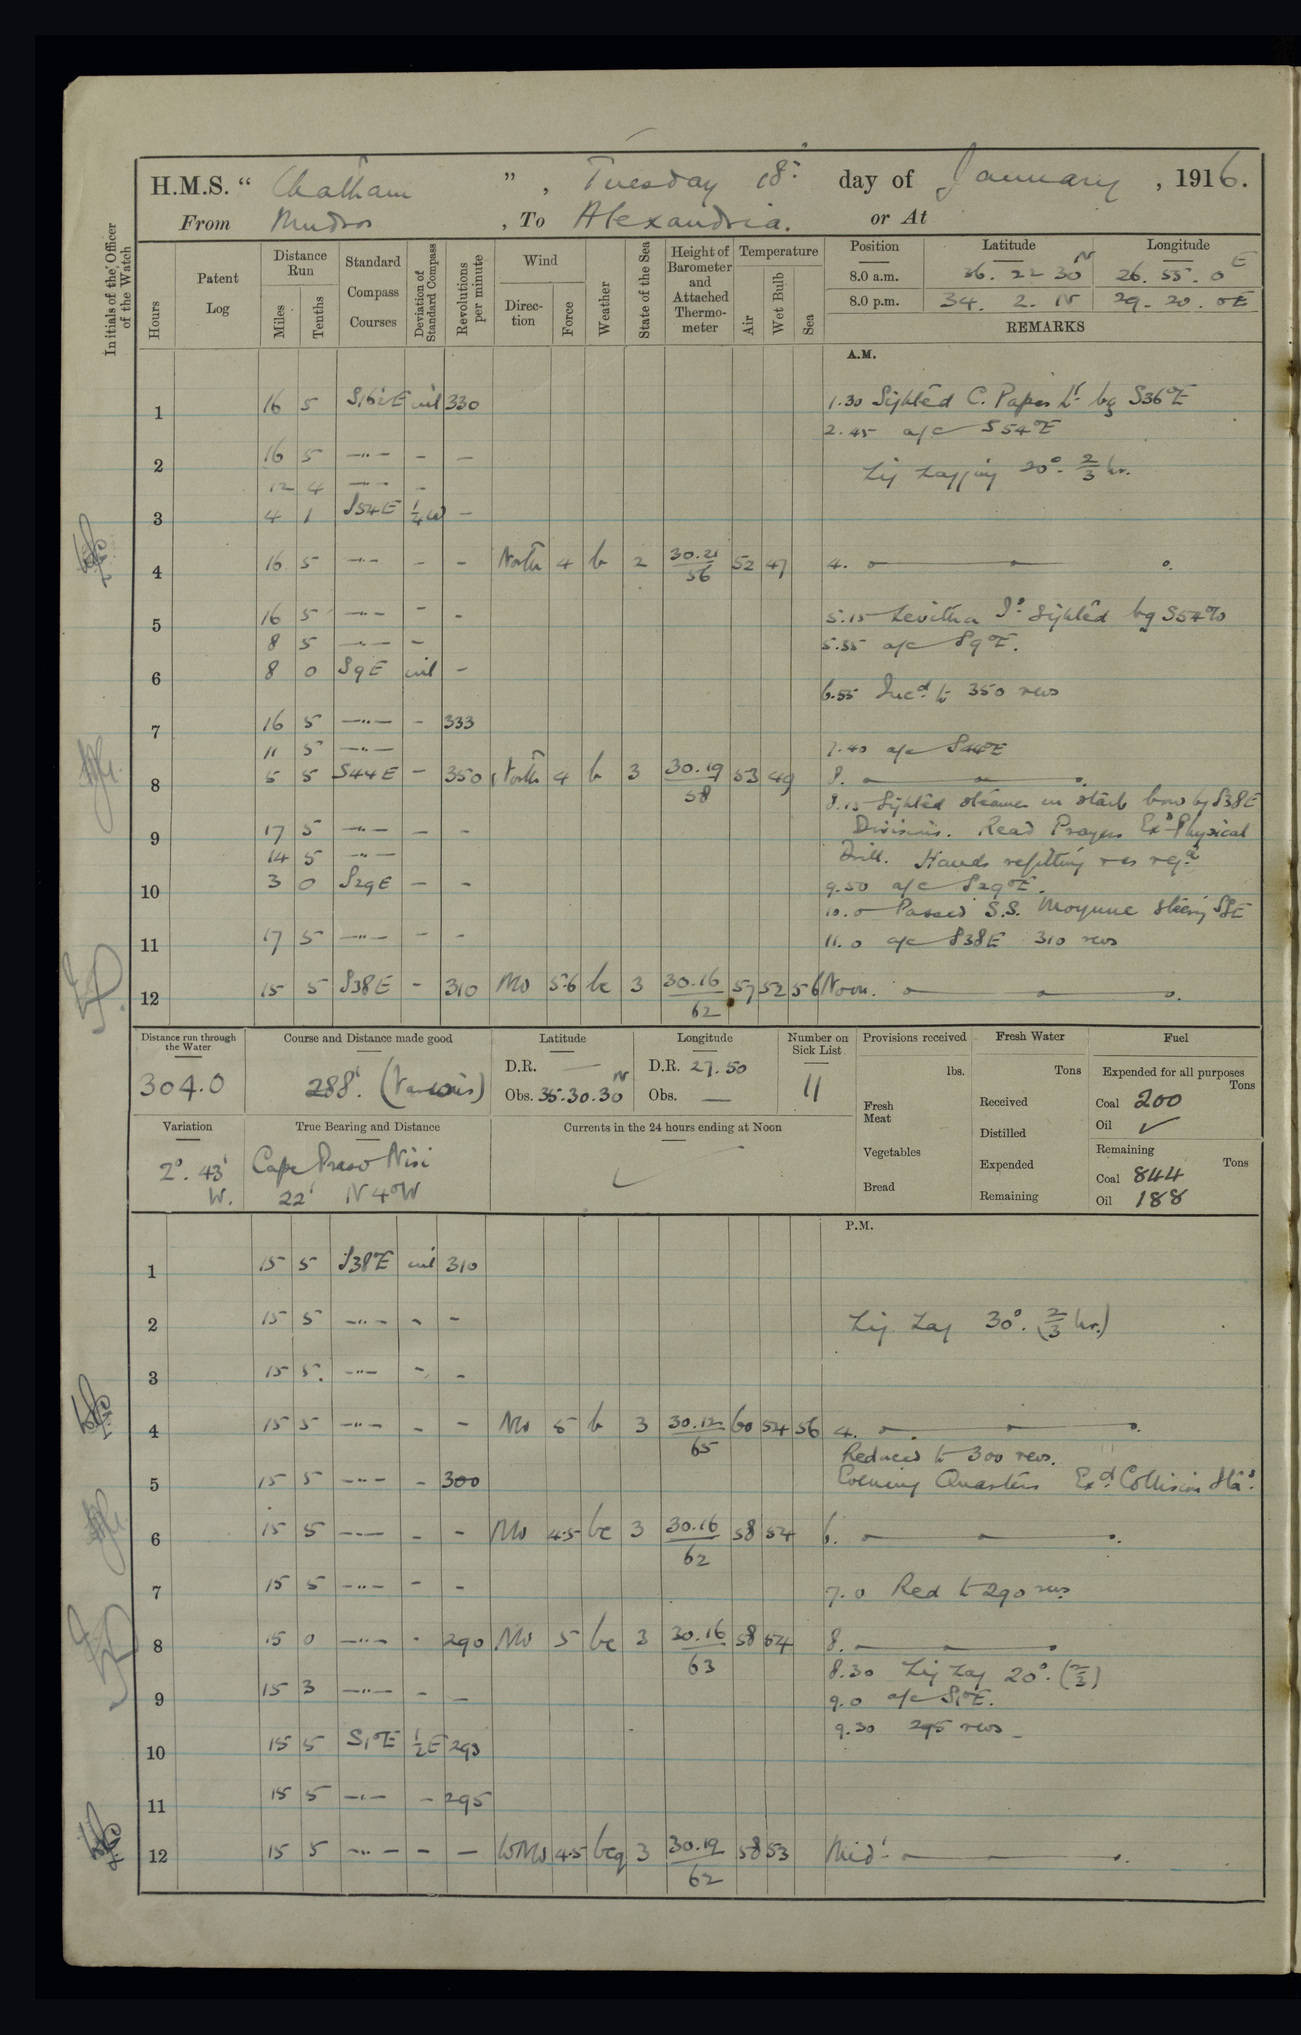 H.M.S. “ Chatham ” , Tuesday 18th day of January , 1916.
From Mudros , To Alexandria. or At
Initials of the Officer of the Watch
Hours
Patent Log
Distance Run
Miles
Tenths
Standard Compass Courses
Deviation of Standard Compass
Revolutions per minute
Wind
Direction
Force
Weather
State of the Sea
Height of Barometer and Attached Thermometer
Temperature
Air
Wet Bulb
Sea
Position Latitude Longitude
8.0 a.m. 36. 22 30 N 26. 55. 0 E
8.0 p.m. 34. 2. N 29. 20. 0 E
REMARKS
A.M.
1 16 5 S16½E nil 330 1.30 Sighted C. Papas Lt bg S36°E
2.45 a/c S54°E
2 16 5 —"— - — Zig zagging 20°. 2/3 hr.
12 4 —"— -
3 4 1 S54E ¼W —
4 16 5 —"— - - North 4 b 2 30.21/56 52 47 4.
5 16 5 —"— - - 5.15 Levitha Id sighted bg S54°
8 5 —"— - 5.55 a/c S9°E.
6 8 0 S9E nil -
6.55 Incd to 350 revs
7 16 5 —"— - 333
11 5 —"— 7.40 a/c S44°E
8 5 5 S44E - 350 North 4 b 3 30.19/58 53 49 8.
8.15 Sighted steamer on starb bow bg S38E
9 17 5 —"— - - Divisions. Read Prayers Exd Physical
14 5 —"— Drill. Hands refitting as reqd
10 3 0 S29E - - 9.50 a/c S29°E.
10.0 Passed S.S. Moyune steering
11 17 5 —"— - - 11.0 a/c S38E 310 revs
12 15 5 S38E - 310 NW 5.6 bc 3 30.16/62 57 52 56 Noon.
Distance run through the Water
304.0
Course and Distance made good
288'. (Various)
Latitude
D.R. —
Obs. 35.30.30 N
Longitude
D.R. 27. 50
Obs. —
Number on Sick List
11
Provisions received
lbs.
Fresh Meat
Vegetables
Bread
Fresh Water
Tons
Received
Distilled
Expended
Remaining
Fuel
Expended for all purposes
Tons
Coal 200
Oil ✓
Remaining
Tons
Coal 844
Oil 188
Variation
2°. 43' W.
True Bearing and Distance
Cape Praso Nisi
22' N 4°W
Currents in the 24 hours ending at Noon
P.M.
1 15 5 S38°E nil 310
2 15 5 —"— - - Zig Zag 30°. (2/3 hr.)
3 15 5. —"— - -
4 15 5 —"— - - NW 5 b 3 30.12/65 60 54 56 4.
Reduced to 300 revs.
5 15 5 —"— - 300 Evening Quarters Exd Collision Stas.
6 15 5 —"— - - NW 4.5 bc 3 30.16/62 58 54 6.
7 15 5 —"— - - 7.0 Red to 290 revs
8 15 0 —"— - 290 NW 5 bc 3 30.16/63 58 54 8.
8.30 Zig Zag 20°. (2/3)
9 15 3 —"— - - 9.0 a/c S1°E.
9.30 295 revs
10 15 5 S1°E ½E 293
11 15 5 —"— - 295
12 15 5 —"— - — WNW 4.5 bcq 3 30.19/62 58 53 Midt